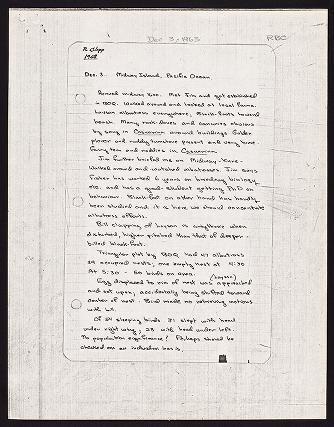 Dec 3, 1963
RBC
R. Clapp
1963
Dec. 3. Midway Island, Pacific Ocean.
Arrived midway 8:00. Met Jim and got established
in BOQ. Walked around and looked at local fauna.
Laysan albatross everywhere, Black-foots toward
beach. Many rock-doves and canaries obvious
by song in Casuarina around buildings. Golden
plover and ruddy turnstone present and very tame.
Fairy tern and noddies in Casuarina.
Jim further briefed me on Midway
Walked around and watched albatrosses. Jim says
Fisher has worked 6 years on breeding biology,
etc. and has a grad-student getting PhD on
behaviour. Black-foot on other hand has hardly
been studied and it is here we should concentrate
albatross efforts.
Bill clapping of laysan is anywhere when
disturbed, higher pitched than that of deeper-
billed black-foot.
Triangular plot by BOQ had 47 albatross
24 occupied nests; one empty nest at 4:30
At 5:30 - 60 birds on area.
(laysan)
Egg displaced to rim of nest was approached
and sat upon, accidentally being shifted toward
center of nest. Bird made no retrieving motions
with bill.
Of 54 sleeping birds 31 slept with head
under right wing; 23 with head under left.
No population significance? Perhaps should be
checked on an individual basis